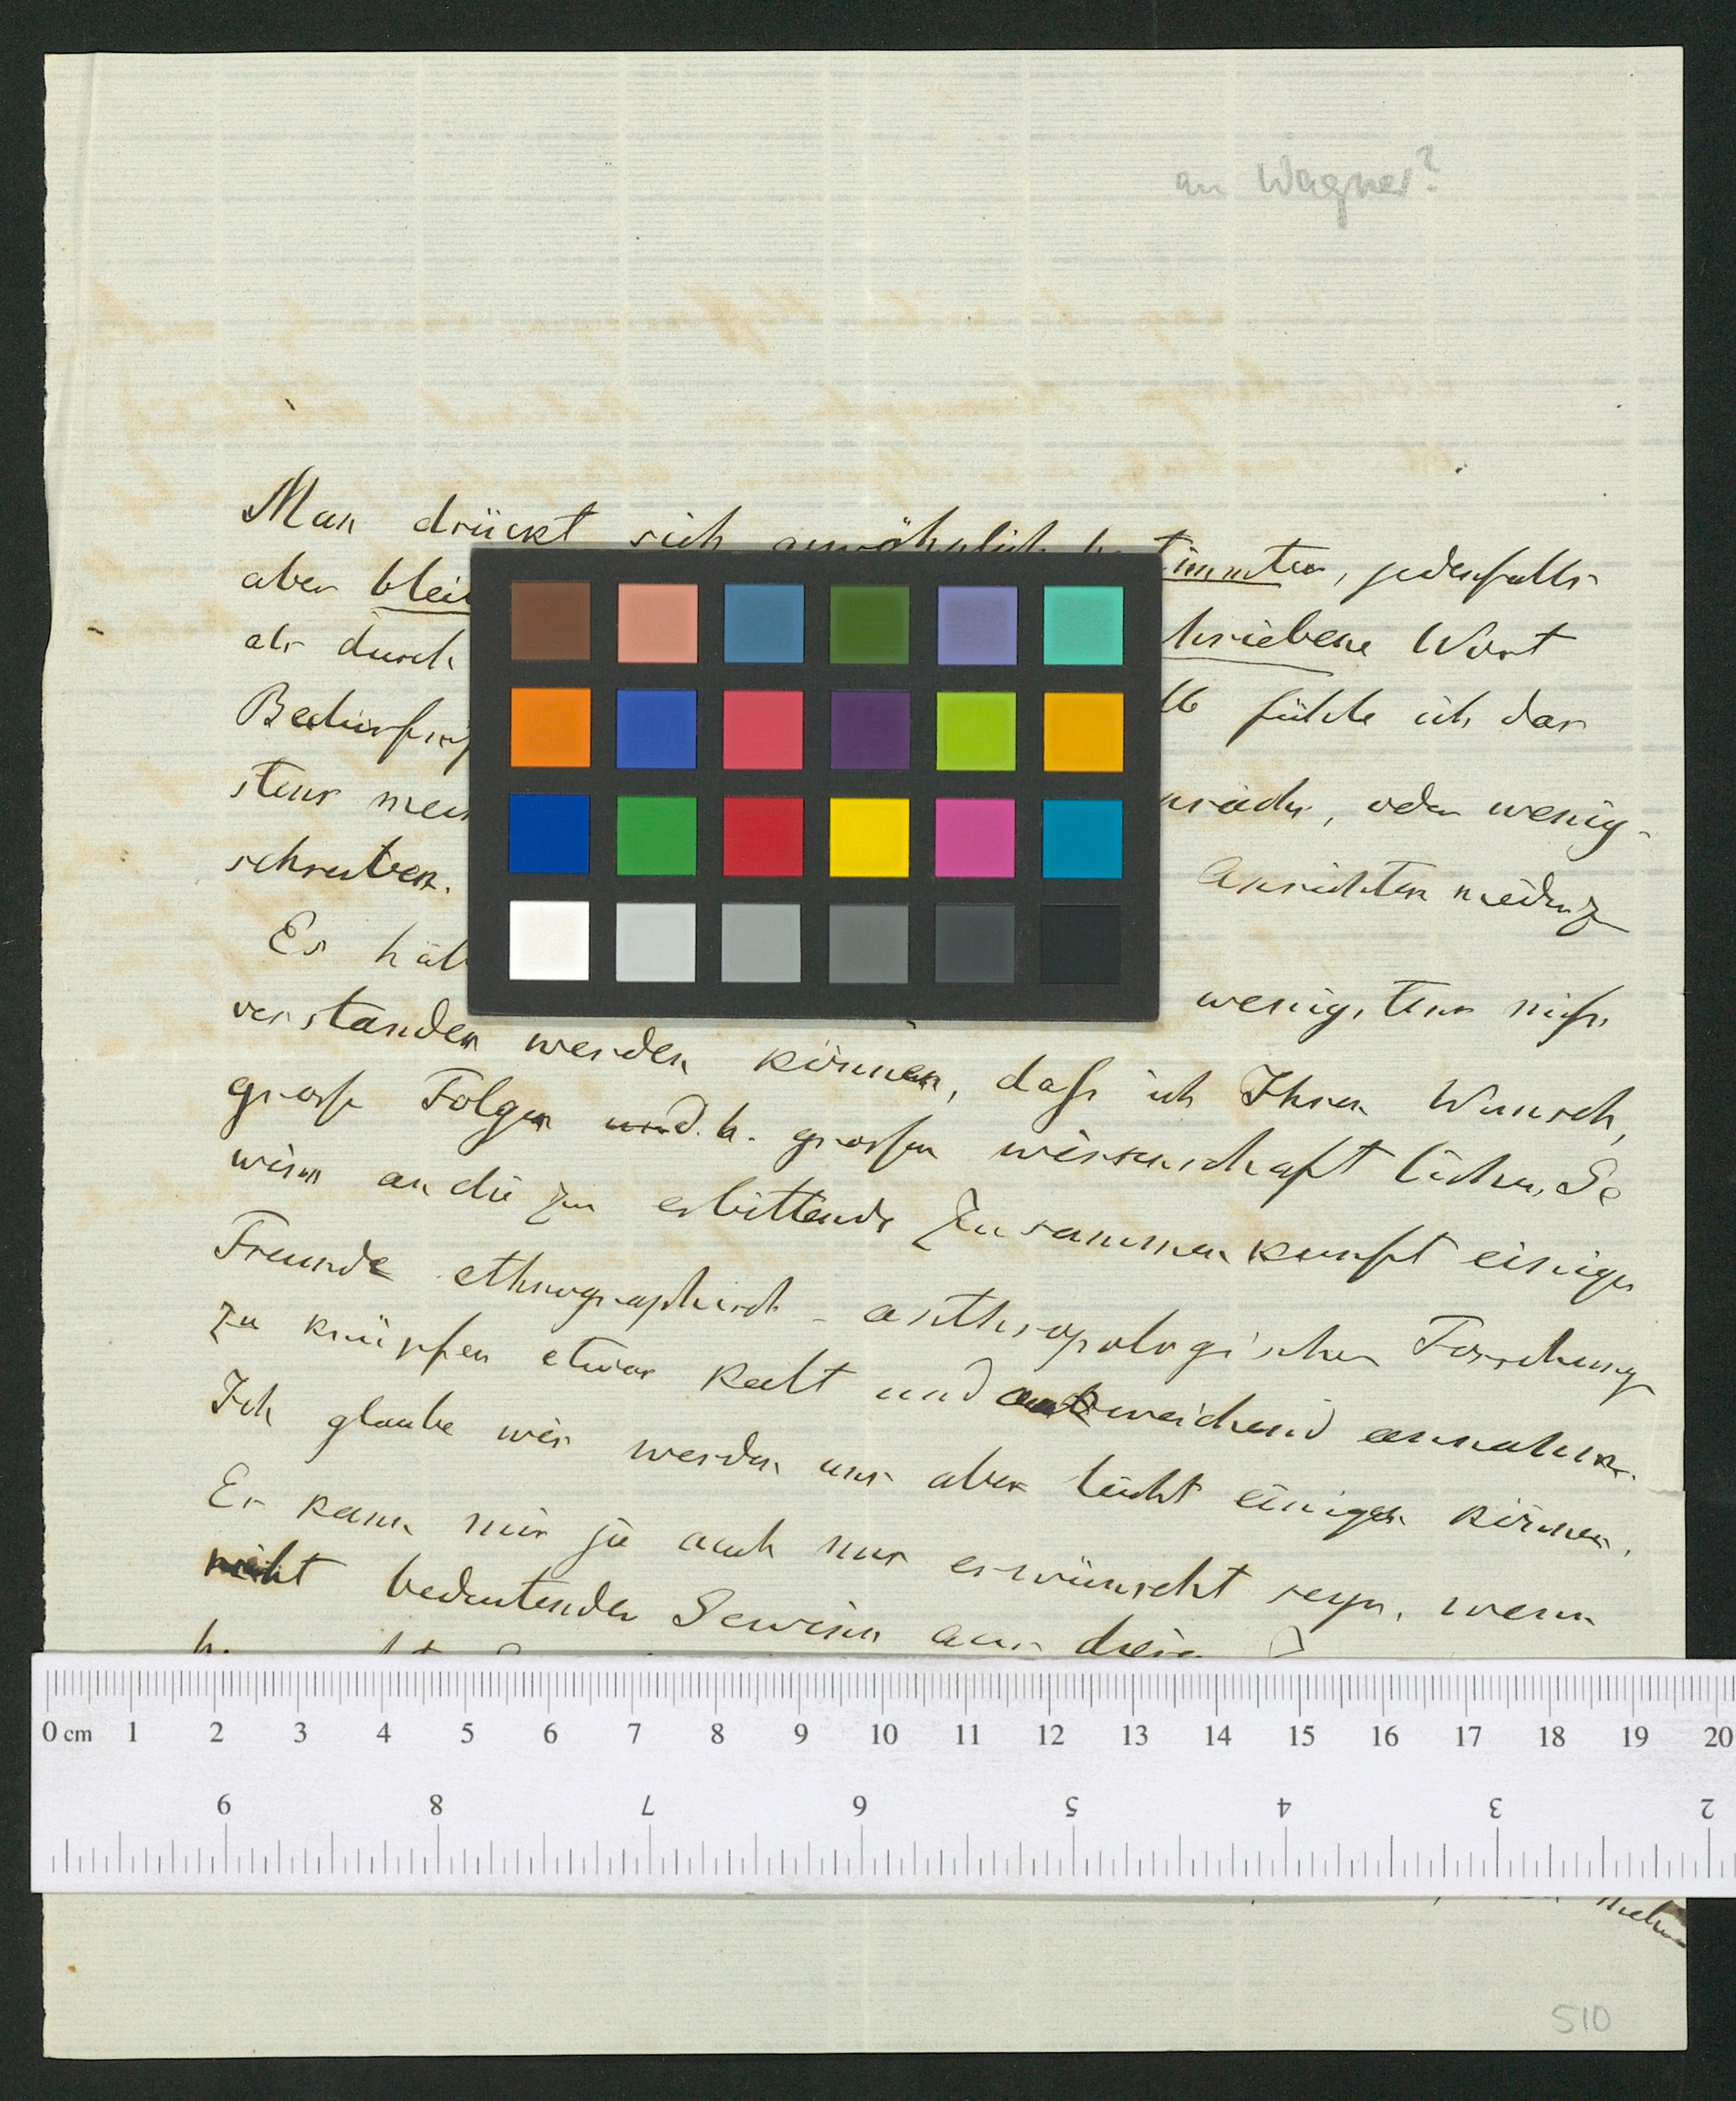 an Wagner?
Man drückt sich gewöhnlich bestimmter, jedenfalls
aber blei
als durch hriebene Wort
Bedürfniß lb fühle ich das
stens mei oder wenig-
schreiben. Ansichten niederzu
Es hät wenigstens miß
verstanden werden können, daß ich Ihren Wunsch,
große Folgen und d. h. großen wissenschaftlichen Ge
winn an die zu erbittende Zusammenkunft einiger
Freunde ethnographisch-anthropologischer Forschung
zu knüpfen etwas kalt und ausweichend annahm.
Ich glaube wir werden uns aber leicht einigen können.
Es kann mir ja auch nur erwünscht seyn, wenn
nicht bedeutender Gewinn aus
0 cm 1 2 3 4 5 6 7 8 9 10 11 12 13 14 15 16 17 18 19 20
9 8 7 6 5 4 3 2
510